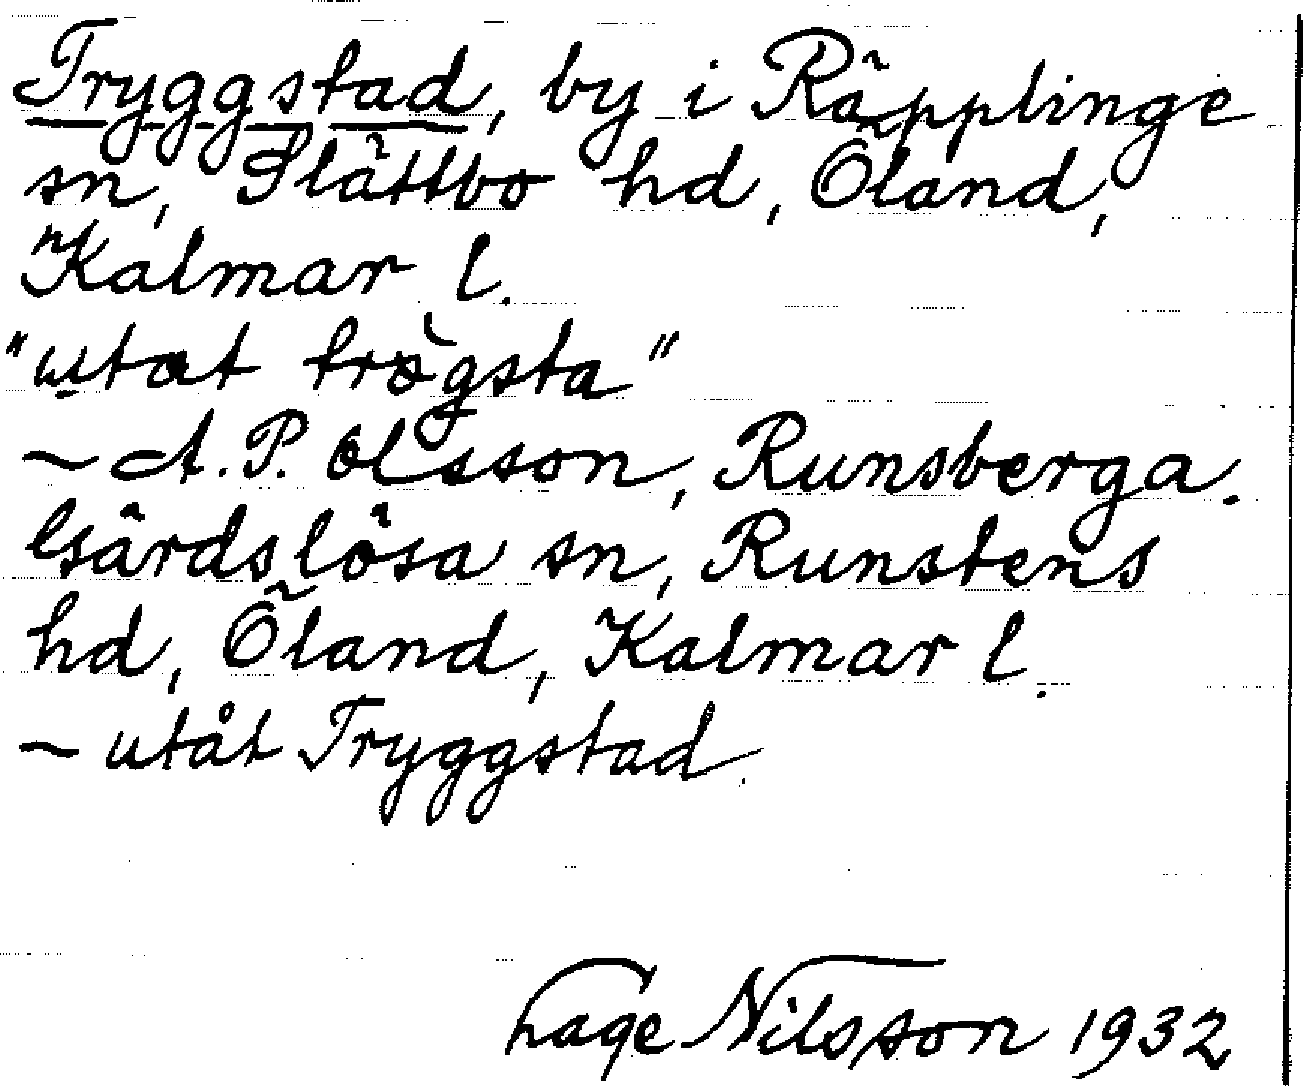 Tryggstad, by i Räpplinge
sn, Slättbo hd, Öland,
Kalmar l.
"utat trògsta"
- A. P. Olsson, Runsberga.
Gärdslösa sn, Runstens
hd, Öland, Kalmar l.
- utåt Tryggstad.
Hage Nilsson 1932